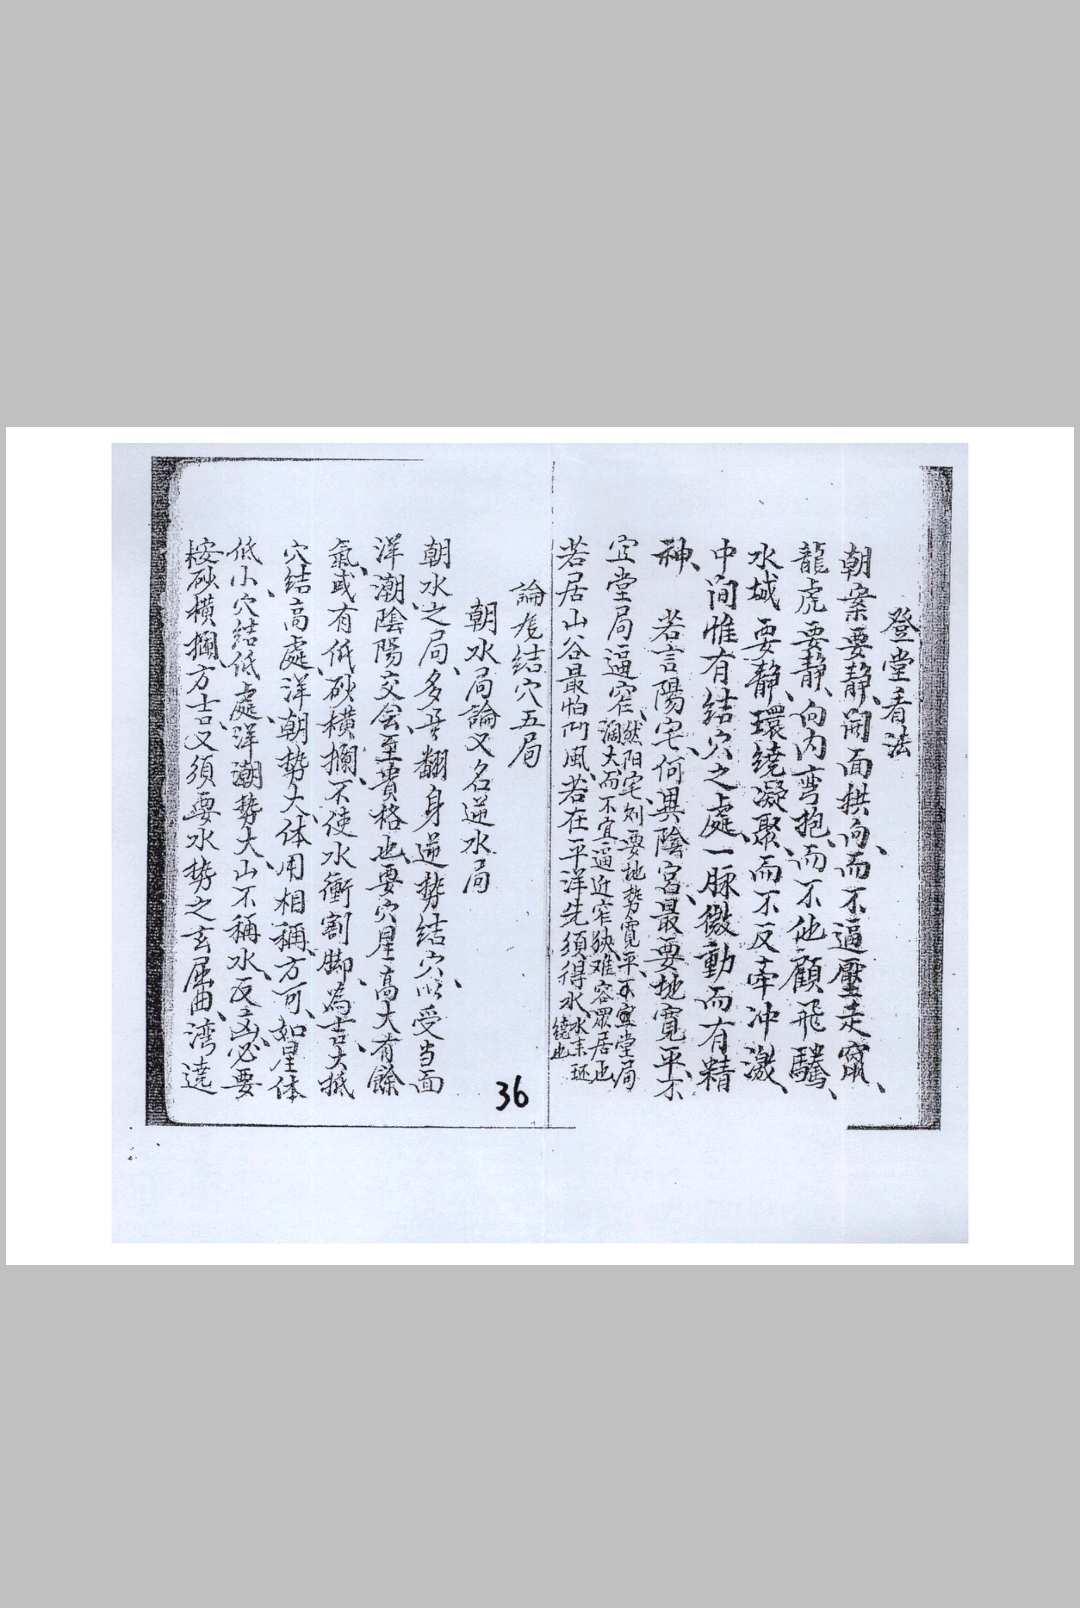 登堂看法
朝案要静、開面拱向、而不逼壓走竄、
龍虎要静、向内弯抱、而不他顧飛騰、
水城要静、環繞凝聚而不反牽冲激、
中间惟有結穴之處、一脉微動而有精
神、 若言陽宅、何異陰宫、最要地寛平、不
宜堂局逼窄、然阳宅则要地势寛平、不宜堂局
濶大、而不宜逼近窄狹、难容眾居也
若居山谷最怕凹風、若在平洋先須得水、水来环
繞也
論龙結穴五局
朝水局論又名逆水局
朝水之局、多是翻身逆势結穴、以受当面
洋潮、陰陽交会、至貴格也、要穴星高大有餘
氣、或有低砂横攔、不使水衝割脚、為吉、大抵
穴結高處、洋朝势大、体用相稱、方可、如星体
低小、穴結低處、洋潮势大、山不稱水、反凶、必要
桉砂横攔、方吉、又須要水势之玄屈曲、湾遶
36